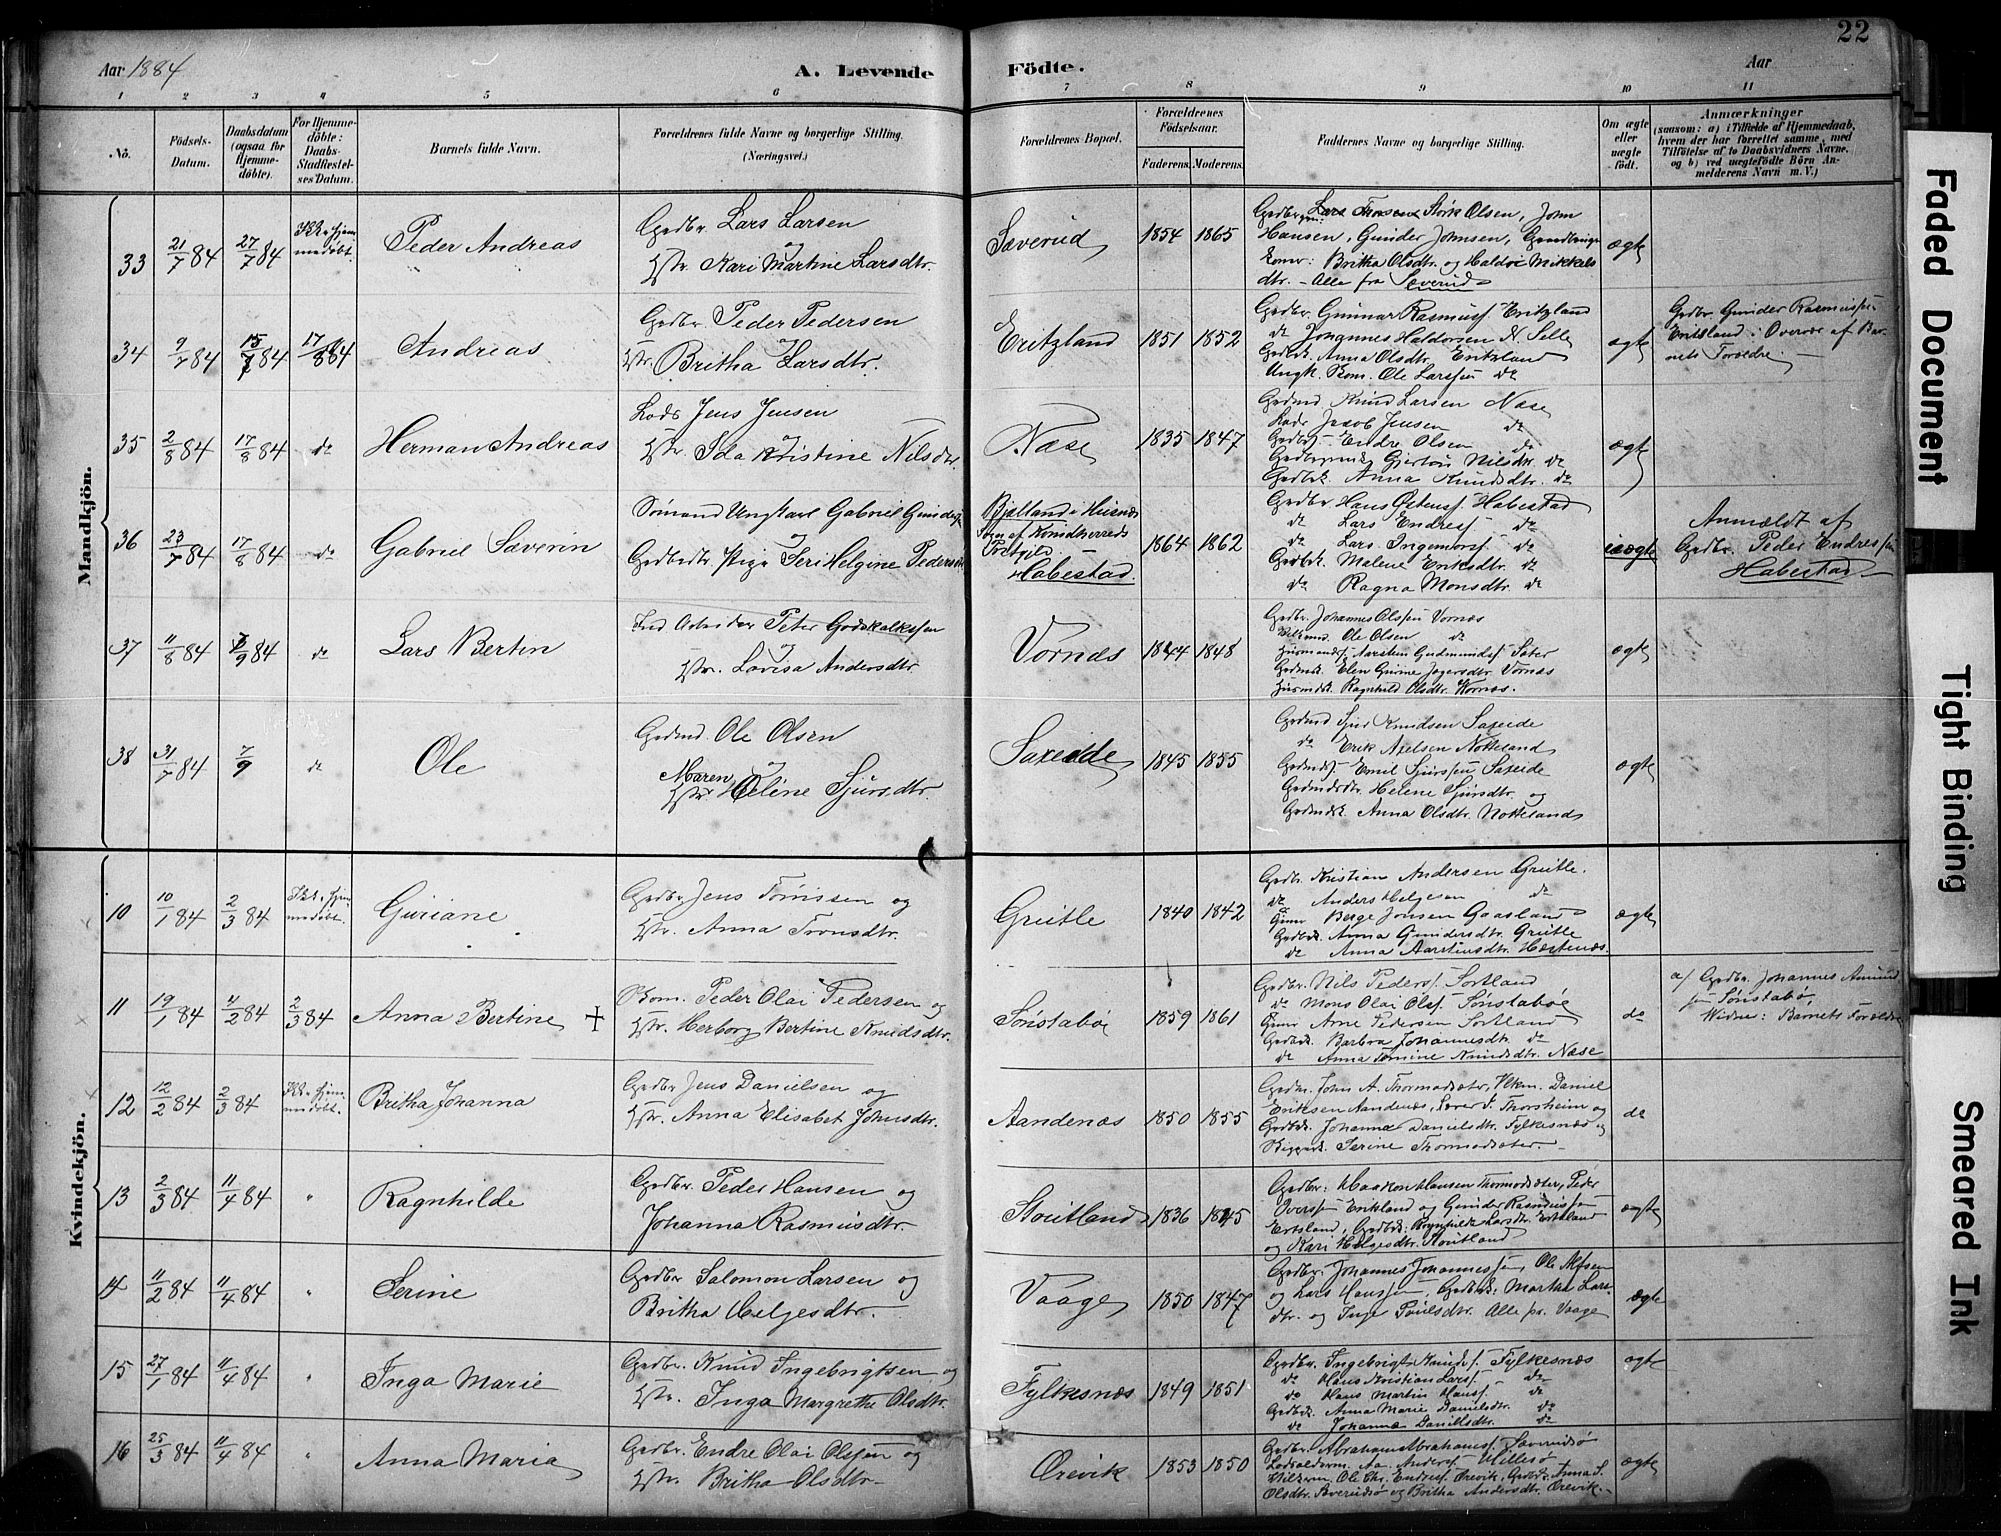 22
Aar 1884
A. Levende
Födte.
Aar
1 2 3 4 5 6 7 8 9 10 11
No.
Födsels-Datum.
Daabsdatum (ogsaa for Hjemmedöbte).
For Hjemmedöbte: Daabs-Stadfæstelses Datum.
Barnets fulde Navn.
Forældrenes fulde Navne og borgerlige Stilling.
(Næringsvei.)
Forældrenes Bopæl.
Forældrenes Födselsaar.
Faderens. Moderens.
Faddernes Navne og borgerlige Stilling.
Om ægte eller uægte födt.
Anmærkninger
(saasom: a) i Tilfælde af Hjemmedaab,
hvem der har forrettet samme, med
Tilföielse af to Daabsvidners Navne.
og b) ved uægtefödte Börn An-
melderens Navn m. V.)
Mandkjön.
33 21/7 84 27/7 84 Peder Andreas
Grdbr. Lars Larsen
og
Hstr. Kari Martine Larsdtr.
Sæverud 1854 1865
Størk Olsen, John
Hansen, Gunder Johnsen,
koner: Britha Olsdtr. og Haldis Mikkels
dtr. – Alle fra Sæverud
ægte
34 9/7 84 15/7 84 17/8 84 Andreas
Grdbr. Peder Pedersen
og
Hstr. Britha Larsdtr.
Eritzland 1851 1852
Grdbr. Gunnar Rasmuss. Eritzland
do Johannes Haldorsen N. Selle
Grdbdt. Anna Olsdtr. Eritzland
Ungk. Bom. Ole Larssen do
ægte
Grdbr. Gunder Rasmussen
Eritzland i Overvær af Bar-
nets Forældre. –
35 2/8 84 17/8 84 do Herman Andreas
Lods Jens Jensen
og
Hstr. Ida Kristine Nilsdtr.
Næse 1835 1847
Grdmd Knud Larsen Næse
Lods Jacob Jensen do
Endre Olsen do
Gjertru Nilsdtr. do
Grdbdt. Anna Knudsdtr. do
ægte
36 23/7 84 17/8 84 do Gabriel Sæverin
Sømand Ungkarl Gabriel
Pige Seri Helgine Pedersdtr
Habestad. 1864 1862
Grdbr. Hans Habestad
do Lars Endress. do
do Lars Ingemors. do
Grdbdt. Malene Eriksdtr. do
do Ragna Monsdtr. do
uægte
Anmeldt af
Grdbr. Peder Endressen
Habestad –
37 11/8 84 7/9 84 do Lars Bertin
Ind. Arbeider Peter Godskalkssen
og
Hstr. Lovisa Andersdtr.
Vornæs 1844 1848
Grdbr. Johannes Olssen Vornæs
Ole Olsen do
Aarsten Gudmunds. Sæter
Vornæs
Ragnhild Olsdtr. Vornæs.
ægte
38 31/7 84 7/9 do Ole
Grdmd. Ole Olsen
og
Maren
Hstr. Heline Sjursdtr.
Saxeide 1845 1855
Grdmd Sjur Knudsen Saxeide
do Erik Axelsen Notteland
Emil Sjurssen Saxeide
Helene Sjursdtr. og
Anna Olsdtr. Notteland
ægte
Kvindekjön.
10 10/1 84 2/3 84 Guriane
Grdbr. Jens Tønnssen og
Hstr. Anna Tronsdtr.
Grutle 1840 1842
Grdbr. Kristian Andersen Grutle.
do Anders Helgesen do
Berge Jonsen Gaasland
Grdbdt. Anna Gundersdtr. Grutle
do Anna Aarstensdtr. Hæstenæs.
ægte
11 19/1 84 4/2 84 2/3 84 Anna Bertine +
Bom. Peder Olai Pedersen og
Hstr. Herborg Bertine Knudsdtr.
Sønstabøe 1859 1861
Grdbr. Nils Peders. Sortland
do Mons Olai Ols. Sønstabøe
Arne Pedersen Sortland
Grdbdt. Barbra Johannesdtr. do
do Anna Tomine Knudsdtr. Næse
do
a/ Grdbr. Johannes Amund
sen Sønstabø,
Vidne: Barnets Forældre
12 12/2 84 2/3 84 Britha Johanna
Grdbr Jens Danielsen og
Hstr. Anna Elisabet Johnsdtr.
Aandenæs 1850 1855
Grdm. John A. Thormodsæter, Daniel
Eriksen Aandenæs, Lærer S. Thorsheim og
Grdbdt. Johanna Danielsdtr. Fylkesnæs og
Serine Thormodsæter –
do
13 2/3 84 11/4 84 " Ragnhilde
Grdbr. Peder Hansen og
Johanna Rasmusdtr.
Stoutland 1836 1845
Grdbr: Haakon Hansen Thormodsæter, Peder
Iverssen Erikland og Gunder Rasmussen
Larsdtr. Erikland
og Kari Helgesdtr. Stoutland
ægte
14 11/2 84 11/4 84 " Serine
Grdbr Salomon Larsen og
Britha Helgesdtr.
Vaage 1850 1847
Grdbr. Johannes Johannessen, Ole Alfsen
og Lars Hanssen, Grdbdt: Martha Lars-
dtr. og Inge Poulsdtr. Alle pr. Vaage
ægte
15 27/1 84 11/4 84 " Inga Marie
Grdbr. Knud Ingebrigtsen og
Hstr. Inga Margrethe Olsdtr.
Fylkesnæs 1849 1851
Grdbr. Ingebrigt Knuds. Fylkesnæs
do Hans Kristian Lars. do
do Hans Martin Hans. do
Grdbdt. Anna Marie Danielsdtr. do
do Johanna Danielsdtr. do
ægte
16 25/3 84 11/4 84 " Anna Maria
Grdbr. Endre Olai Olssen og
Hstr. Britha Olsdtr.
Ørevik 1853 1850
Grdbr. Abraham Abrahams. Sæverudsø
Lodsolderm. Aa. Anders. Hillesø
Ole Chr. Endress. Ørevik, Grdbdt. Anna S.
Olsdtr. Sæverudsø og Britha Andersdtr. Ørevik. –
ægte
Faded Document
Tight Binding
Smeared Ink